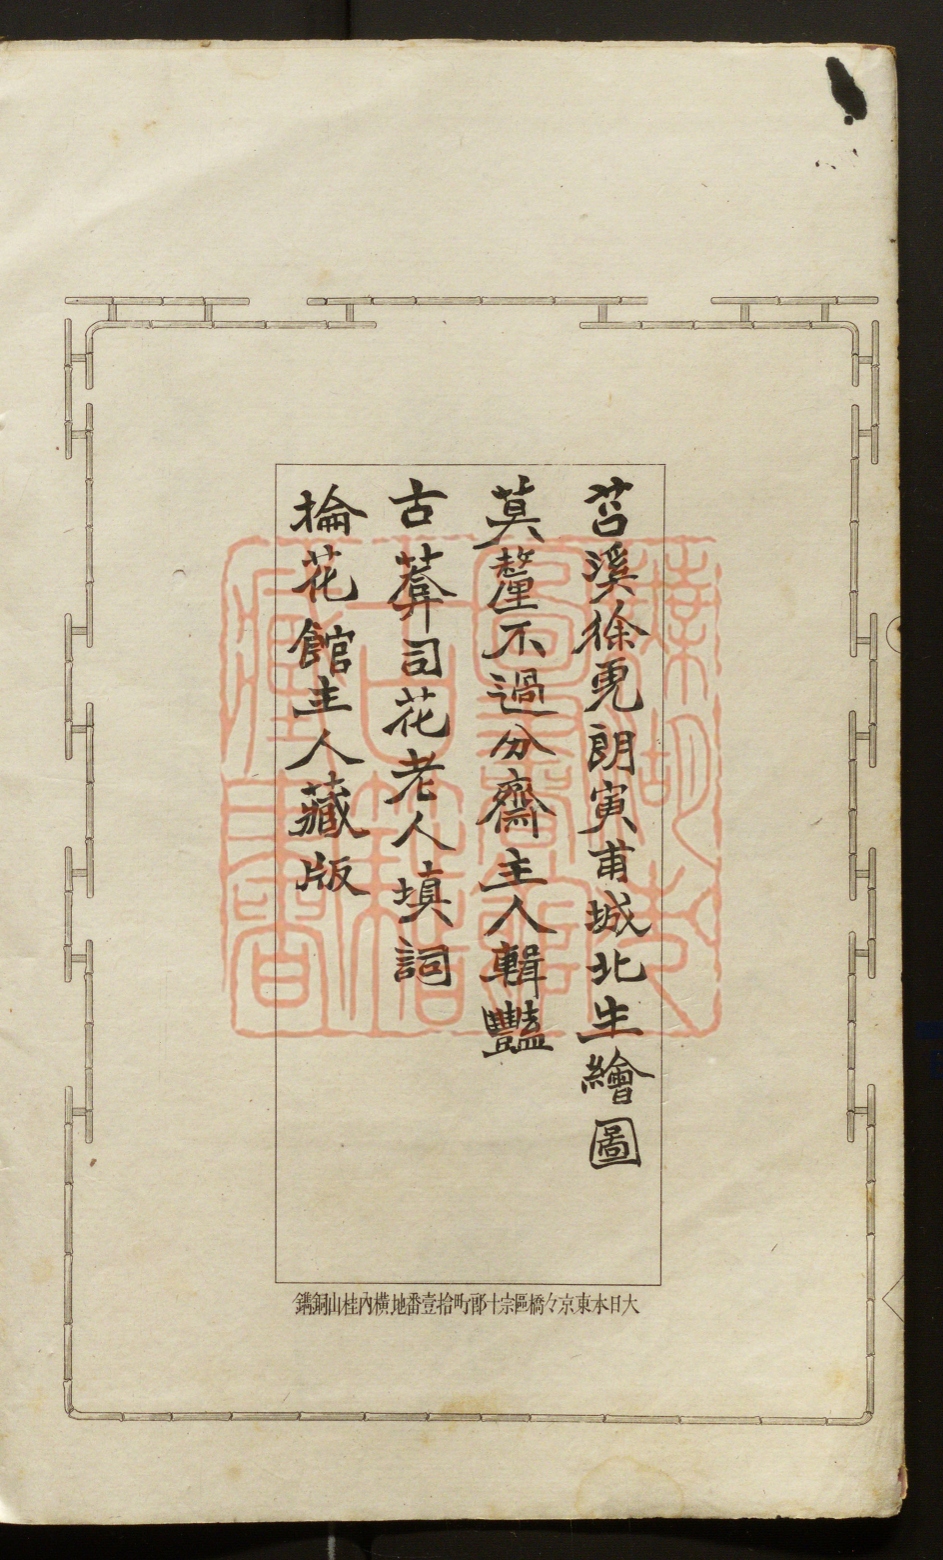 苕溪徐虎朗寅甫城北生繪圖
莫釐不過分齋主人輯豔
古莽司花老人填詞
掄花館主人藏版
大日本東京々橋區宗十郎町拾壹番地橫內桂山銅鐫